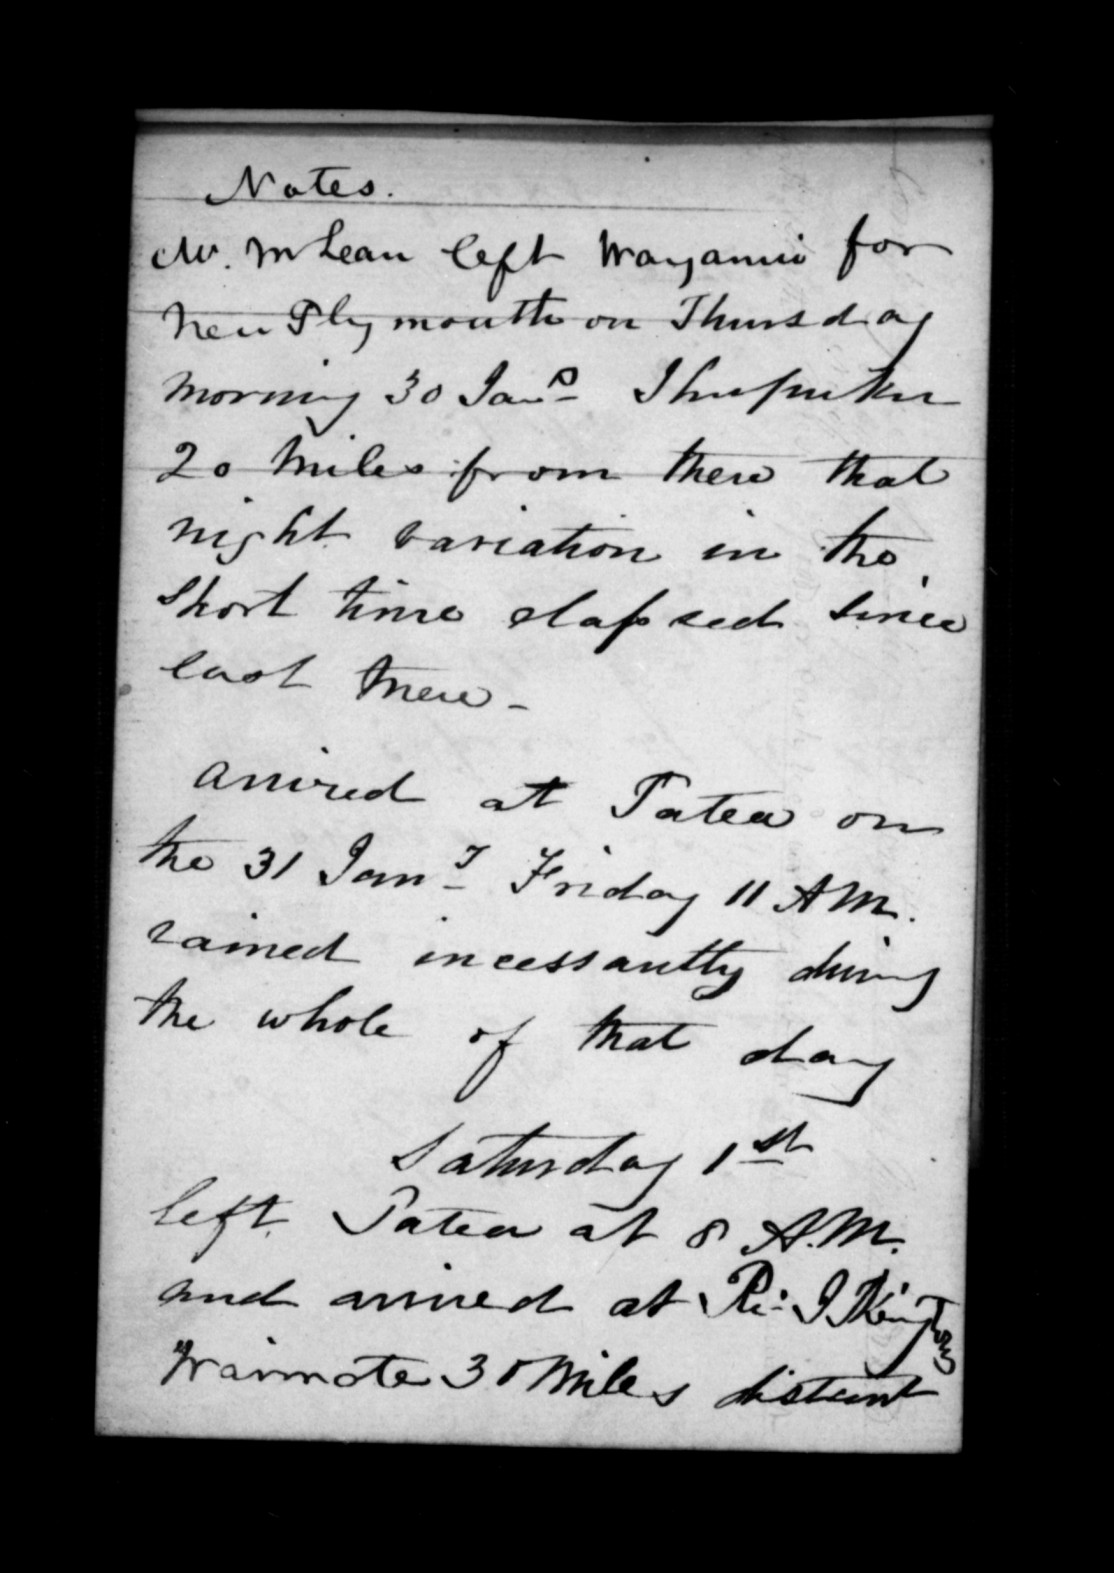 Notes.
Mr. McLean left Wanganui for
New Plymouth on Thursday
morning 30 Jany
20 Miles from there that
night variation in the
short time elapsed since
last there -
arrived at Patea on
the 31 Jany Friday 11 A.M.
rained incessantly during
the whole of that day
Saturday 1st
left Patea at 8 A.M.
and arrived at
Waimate 30 Miles distant